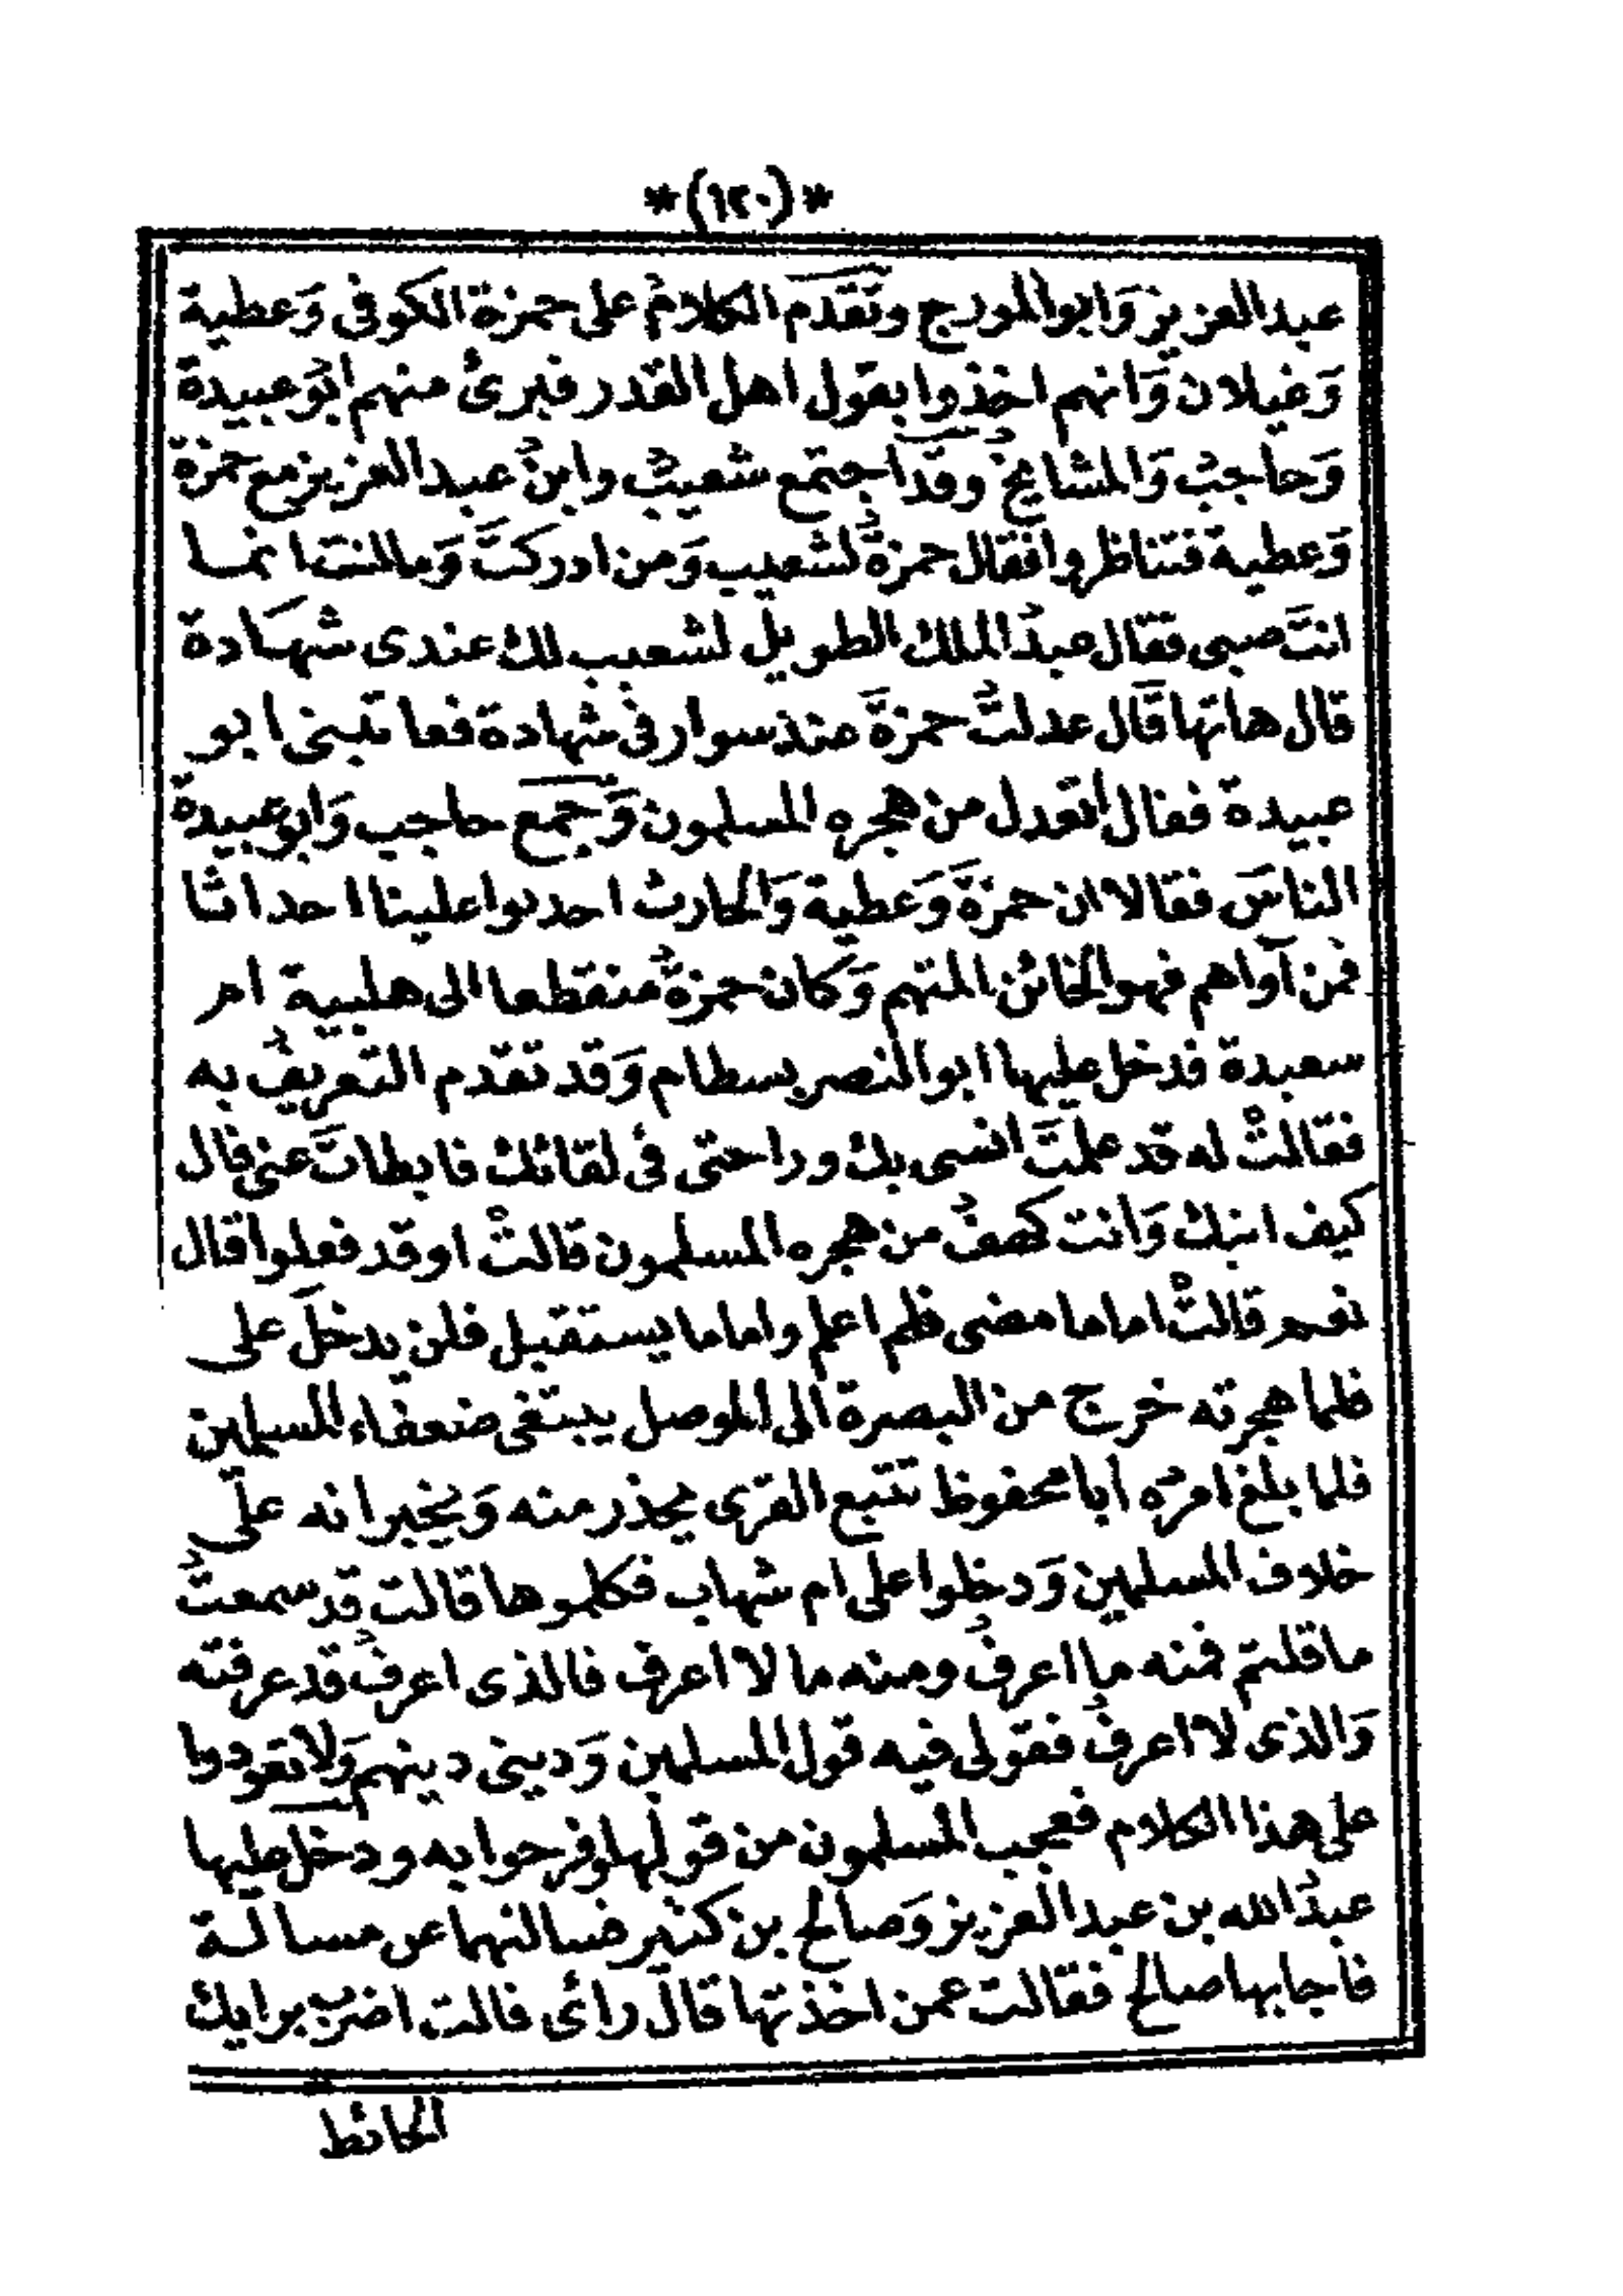 *(١٢٠)*
عبد العزيز وَابو المورج وتَقدَم الكلامُ على حمزة الكوفى وَعطية
وَغيلان وَانهم اخذوا بقول اهل القدر فبرئ منهم ابُو عبيدة
وَحاجبُ وَالمشايخُ وقد اجتمع شعيبُ وابنُ عبد العزيز مع حمزة
وَعطية فتناظروا فقال حمزةُ لشعيب وَمن ادركتَ وَمالنت انما
انتَ صبى فقال عبدُ الملك الطويل لشعيب لك عندى شهَادة
قال هاتها قَال عدلتُ حمزةَ عند سوار فى شهادة فعاتبنى ابو
عبيدة فقال اتعدل من هجره المسلمون وَجمع حاجب وَابو عبيدة
الناسَ فقالا ان حمزةَ وَعطية وَالحارث احدثوا علينا احداثا
فمن آواهم فهو الخائن المتهم وَكان حمزةُ منقطعا الى هلبية ام
سعيدة فدخل عليها ابو النصر بسطام وَقد تقدم التعريفُ به
فقالتْ له قد علمتَ انسى بك وراحتى فى لقائك فابطاتَ عنى قال
كيف اتيك وَانت كهفُ من هجره المسلمون قالتْ اوقد فعلوا قال
نعم قالتْ اما ما مضى فلم اعلم واما ما يستقبل فلن يدخلَ على
فلما هجرته خرج من البصرة الى الموصل يبتغى ضعفاء المسلمين
فلما بلغ امرُه ابا محفوظ تتبع القرى يحذر منه وَيخبر انه على
خلاف المسلمين وَدخلوا على ام شهاب فكلموها قالت قد سمعتُ
ما قلتم فمنه ما اعرفُ ومنه ما لا اعرف فالذى اعرفُ قد عرفته
وَالذى لا اعرفُ فقولى فيه قول المسلمين وَدينى دينهم وَلا تعودوا
على هذا الكلام فعجب المسلمون من قولها وفر جوابه ودخل عليها
عبدُ الله بن عبد العزيز وَصالح بن كثير فسالتهما عن مسالة
فاجابها صالح فقالت عمن اخذتها قال رائى قالت اضرب برايك
الحائط